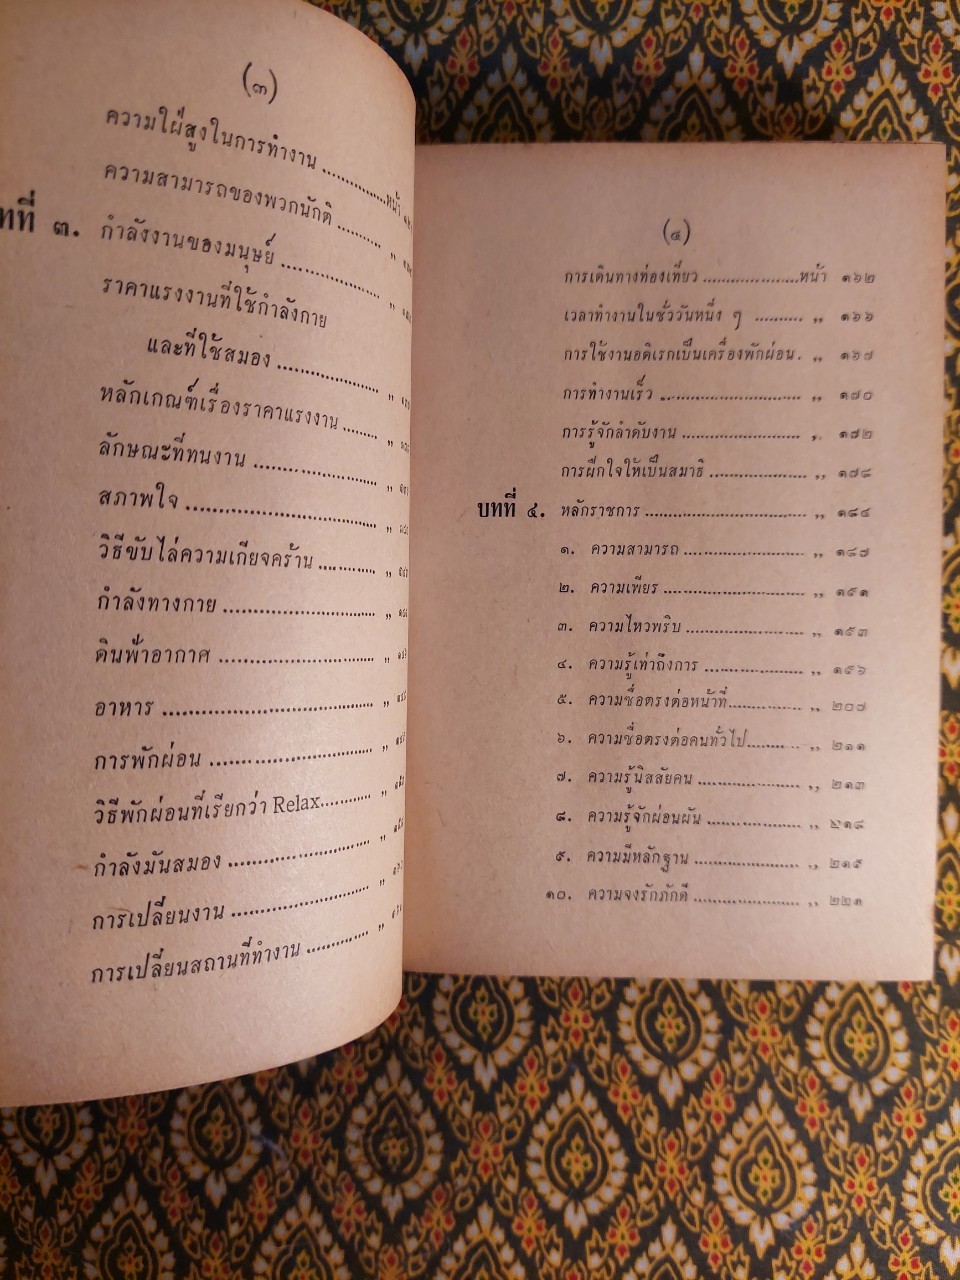 (๓)
ความใฝ่สูงในการทำงาน ..................หน้า
ความสามารถของพวกนักคิ .......... ,,
บทที่ ๓. กำลังงานของมนุษย์ .................. ,,
ราคาแรงงานที่ใช้กำลังกาย
และที่ใช้สมอง .................. ,,
หลักเกณฑ์เรื่องราคาแรงงาน ........ ,,
ลักษณะที่ทนงาน .................. ,,
สภาพใจ ............................ ,,
วิธีขับไล่ความเกียจคร้าน ............ ,,
กำลังทางกาย ........................ ,,
ดินฟ้าอากาศ ........................ ,,
อาหาร ................................ ,,
การพักผ่อน ........................ ,,
วิธีพักผ่อนที่เรียกว่า Relax........... ,,
กำลังมันสมอง ...................... ,,
การเปลี่ยนงาน ...................... ,,
การเปลี่ยนสถานที่ทำงาน ............ ,,
(๔)
การเดินทางท่องเที่ยว .....................หน้า ๑๖๒
เวลาทำงานในชั่ววันหนึ่ง ๆ .......... ,, ๑๖๖
การใช้งานอดิเรกเป็นเครื่องพักผ่อน. ,, ๑๖๗
การทำงานเร็ว .............................. ,, ๑๗๐
การรู้จักลำดับงาน ......................... ,, ๑๗๒
การฝึกใจให้เป็นสมาธิ .................... ,, ๑๗๘
บทที่ ๔. หลักราชการ .................................. ,, ๑๘๔
๑. ความสามารถ .......................... ,, ๑๘๗
๒. ความเพียร .............................. ,, ๑๙๑
๓. ความไหวพริบ .......................... ,, ๑๙๓
๔. ความรู้เท่าถึงการ ..................... ,, ๑๙๖
๕. ความซื่อตรงต่อหน้าที่................ ,, ๒๐๗
๖. ความซื่อตรงต่อคนทั่วไป........... ,, ๒๑๑
๗. ความรู้นิสสัยคน ...................... ,, ๒๑๓
๘. ความรู้จักผ่อนผัน .................... ,, ๒๑๘
๙. ความมีหลักฐาน ....................... ,, ๒๑๙
๑๐. ความจงรักภักดี ....................... ,, ๒๒๑